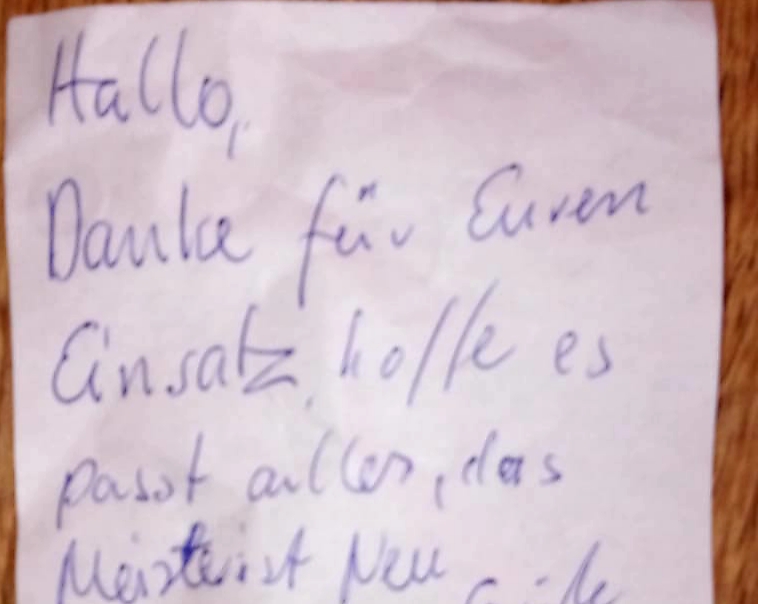 Hallo,
Danke für Euren
Einsatz, hoffe es
passt alles, das
Meiste ist Neu